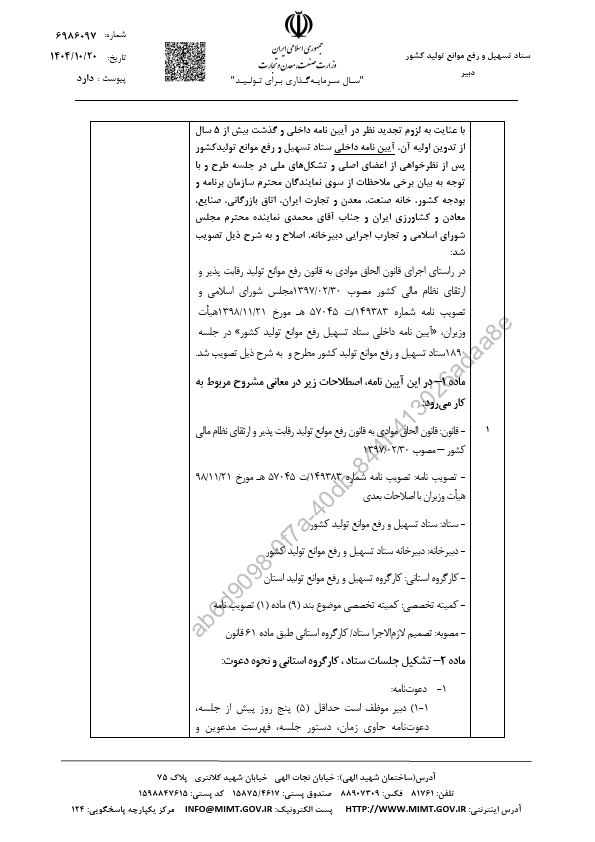 ستاد تسهیل و رفع موانع تولید کشور
دبیر
جمهوری اسلامی ایران
وزارت صنعت، معدن و تجارت
"سال سرمایه‌گذاری برای تولید"
شماره: ۶۹۸۶۰۹۷
تاریخ: ۱۴۰۴/۱۰/۲۰
پیوست : دارد
با عنایت به لزوم تجدید نظر در آیین نامه داخلی و گذشت بیش از ۵ سال
از تدوین اولیه آن، آیین نامه داخلی ستاد تسهیل و رفع موانع تولیدکشور
پس از نظرخواهی از اعضای اصلی و تشکل‌های ملی در جلسه طرح و با
توجه به بیان برخی ملاحظات از سوی نمایندگان محترم سازمان برنامه و
بودجه کشور، خانه صنعت، معدن و تجارت ایران، اتاق بازرگانی، صنایع،
معادن و کشاورزی ایران و جناب آقای محمدی نماینده محترم مجلس
شورای اسلامی و تجارب اجرایی دبیرخانه، اصلاح و به شرح ذیل تصویب
شد:
در راستای اجرای قانون الحاق موادی به قانون رفع موانع تولید رقابت پذیر و
ارتقای نظام مالی کشور مصوب ۱۳۹۷/۰۲/۳۰مجلس شورای اسلامی و
تصویب نامه شماره ۱۴۹۳۸۳/ت ۵۷۰۴۵ هـ مورخ ۱۳۹۸/۱۱/۲۱هیأت
وزیران، «آیین نامه داخلی ستاد تسهیل رفع موانع تولید کشور» در جلسه
۱۸۹ستاد تسهیل و رفع موانع تولید کشور مطرح و به شرح ذیل تصویب شد.
ماده ۱– در این آیین نامه، اصطلاحات زیر در معانی مشروح مربوط به
کار می‌رود:
۱
- قانون: قانون الحاق موادی به قانون رفع موانع تولید رقابت پذیر و ارتقای نظام مالی
کشور – مصوب ۱۳۹۷/۰۲/۳۰
- تصویب نامه: تصویب نامه شماره ۱۴۹۳۸۳/ت ۵۷۰۴۵ هـ مورخ ۹۸/۱۱/۲۱
هیأت وزیران با اصلاحات بعدی
- ستاد: ستاد تسهیل و رفع موانع تولید کشور
- دبیرخانه: دبیرخانه ستاد تسهیل و رفع موانع تولید کشور
- کارگروه استانی: کارگروه تسهیل و رفع موانع تولید استان
- کمیته تخصصی: کمیته تخصصی موضوع بند (۹) ماده (۱) تصویب نامه
- مصوبه: تصمیم لازم‌الاجرا ستاد/ کارگروه استانی طبق ماده ۶۱ قانون
ماده ۲– تشکیل جلسات ستاد ، کارگروه استانی و نحوه دعوت:
۱- دعوت‌نامه:
۱-۱) دبیر موظف است حداقل (۵) پنج روز پیش از جلسه،
دعوت‌نامه حاوی زمان، دستور جلسه، فهرست مدعوین و
آدرس(ساختمان شهید الهی): خیابان نجات الهی خیابان شهید کلانتری پلاک ۷۵
تلفن: ۸۱۷۶۱ فکس: ۸۸۹۰۷۳۰۹ صندوق پستی: ۱۵۸۷۵/۴۶۱۷ کد پستی: ۱۵۹۸۸۴۷۶۱۵
آدرس اینترنتی: HTTP://WWW.MIMT.GOV.IR پست الکترونیک: INFO@MIMT.GOV.IR مرکز یکپارچه پاسخگویی: ۱۲۴